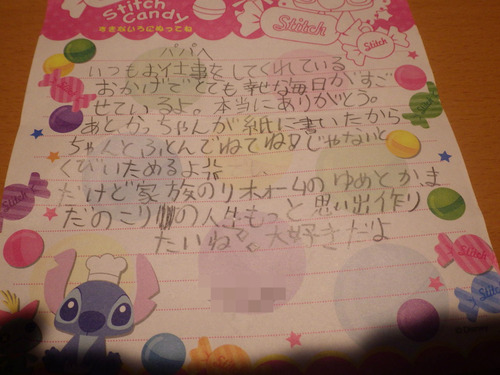 Stitch
Candy
すきないろにぬってね
Stitch
Stitch
パパへ
いつもお仕事をしてくれている
おかげでとても幸せな毎日がすご
せているよ。本当にありがとう。
あとかっちゃんが紙に書いたから
ちゃんとふとんでねてね。じゃないと
くびいためるよ
だけど家族のリホォームのゆめとかま
だのこりの人生もっと思い出作り
たいね。大好きだよ
Stitch
Stitch